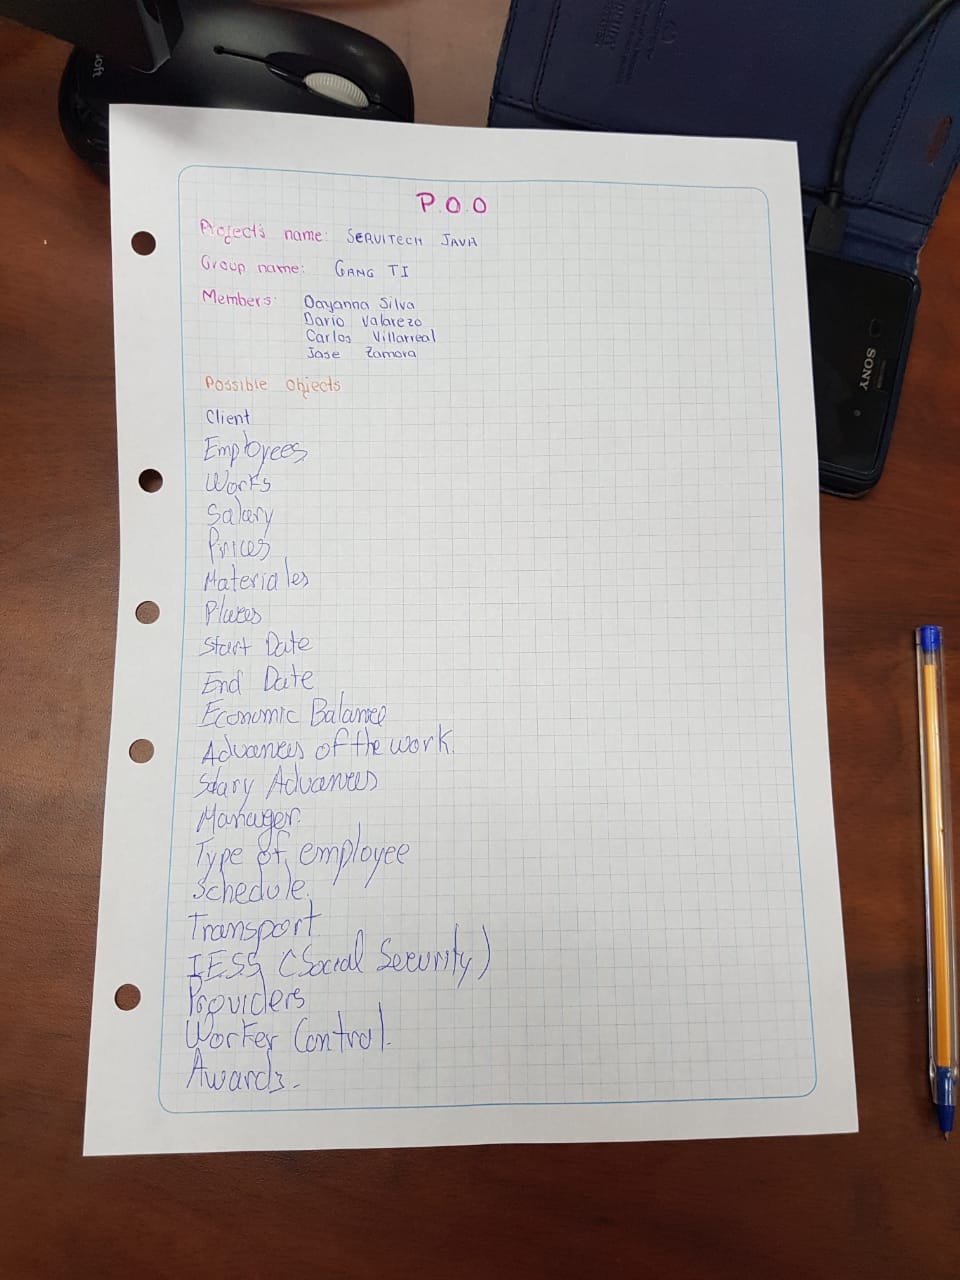 P.O.O
Project's name: SERVITECH JAVA
Group name: GANG TI
Members: Dayanna Silva
Dario Valarezo
Carlos Villarreal
Jose Zamora
Possible Objects
Client
Employees
Works
Salary
Prices
Materiales
Places
Start Date
End Date
Economic Balance
Advances of the work.
Salary Advances
Manager.
Type of employee
Schedule.
Transport
IESS (Social Security)
Providers
Worker Control.
Awards.
SONY
soft